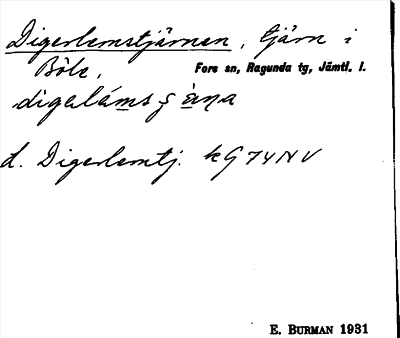 Digerlemstjärnen, tjärn i
Böle, Fors sn, Ragunda tg, Jämtl. l.
d. Digerlemtj. kG74NV
E. BURMAN 1931